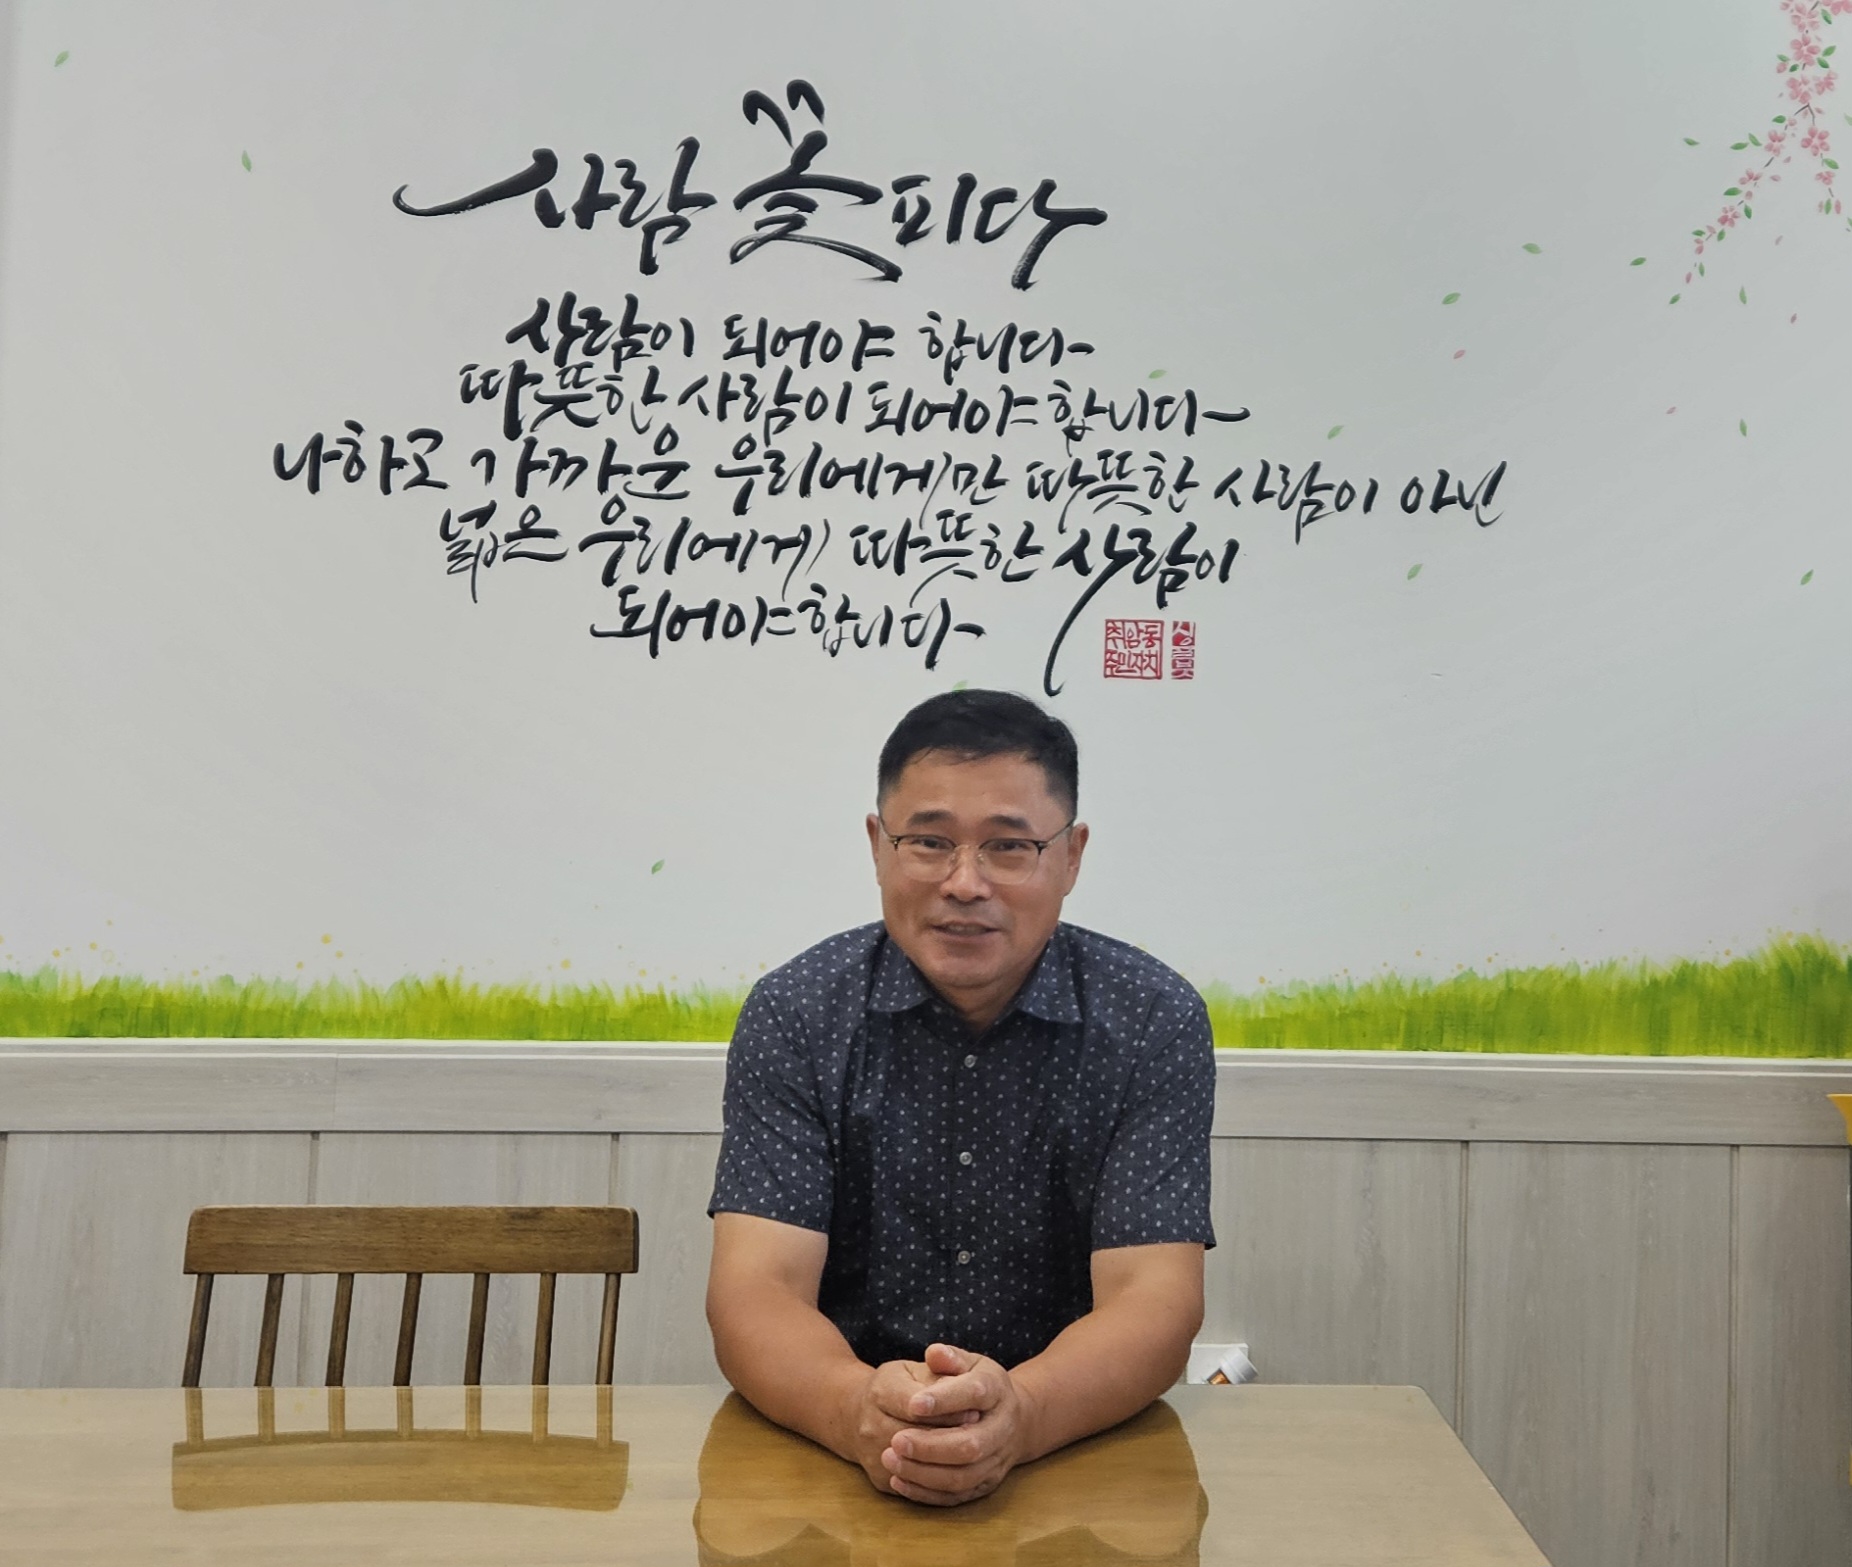 사람 꽃 피다
사람이 되어야 합니다
따뜻한 사람이 되어야 합니다
나하고 가까운 우리에게만 따뜻한 사람이 아닌
넓은 우리에게 따뜻한 사람이
되어야 합니다
취암동
주민자치